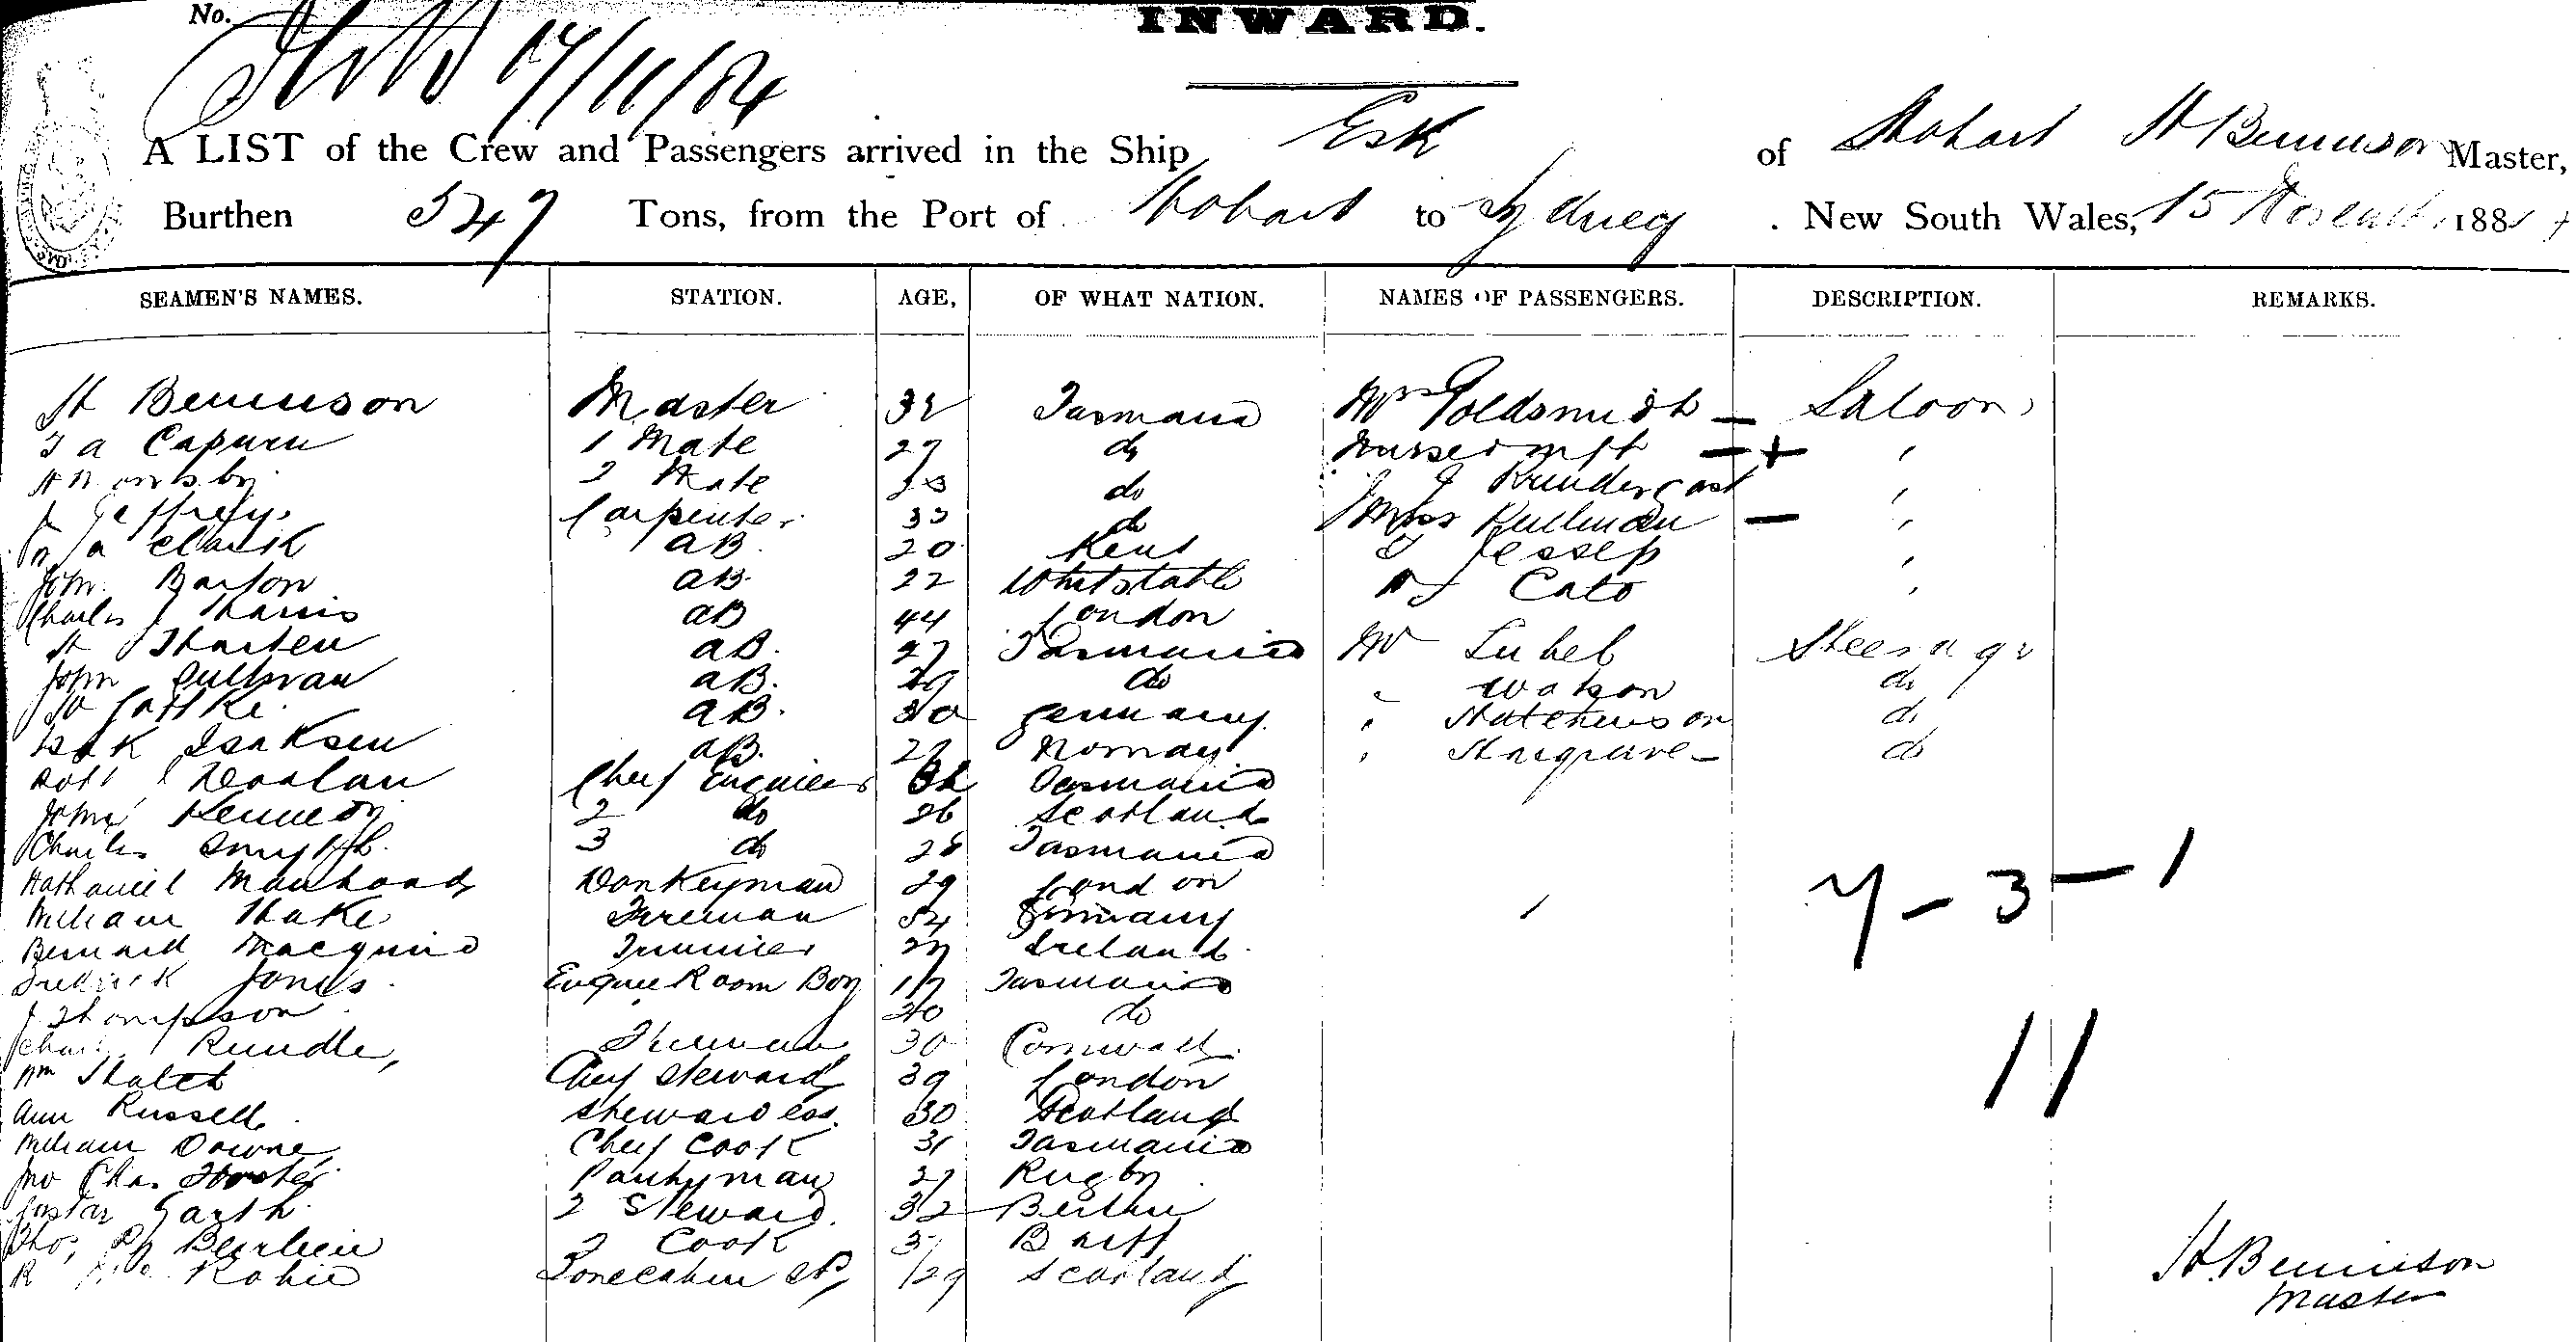 No.
INWARD.
17/11/84
A LIST of the Crew and Passengers arrived in the Ship Esk of Hobart H Bennison Master,
Burthen 547 Tons, from the Port of Hobart to Sydney . New South Wales, 15 Novemb 1884
SEAMEN'S NAMES. STATION. AGE, OF WHAT NATION. NAMES OF PASSENGERS. DESCRIPTION. REMARKS.
H Bennison Master Tasmania Mrs Goldsmith Saloon
T a Capurn 1 Mate 27 do
2 Mate do J Prendergast
J Jeffreys Carpenter 33 do Miss Kullman
a Clark aB. 20 Kent Jessep
John Barton aB. 22 Whitstable Cato
Charles J Harris aB 44 London
H Tharsen aB. 27 Tasmania Mr Luheb Steerage
John Sullivan aB. 29 do " Watson do
aB. 30 Germany. " Hutchinson do
Isak Isaksen aB. 27 Norway " Hargrave do
Robt Doolan Chief Engineer Tasmania
John Kennedy 2 do 26 Scotland
Charles Smyth. 3 do 28 Tasmania
Nathaniel Donkeyman 29 London
William Hake Fireman 54 Germany
Bernard Macquire Trimmer 27 Ireland.
Fredrick Jones Engine Room Boy 17 Tasmania
J Thompson 20 do
Charles Rundle, Fireman 30 Cornwall.
Wm Chief Steward 39 London
Ann Russell. Stewardess. 30 Scotland
William Downe Chief Cook 31 Tasmania
Jno Chas. Forster Pantryman 27 Rugby
Gustav Garth. 2 Steward. 32 Berlin
Thos, 2 Cook 37 Banff
R 29 Scotland
7 - 3 - 1
11
H. Bennison
Master